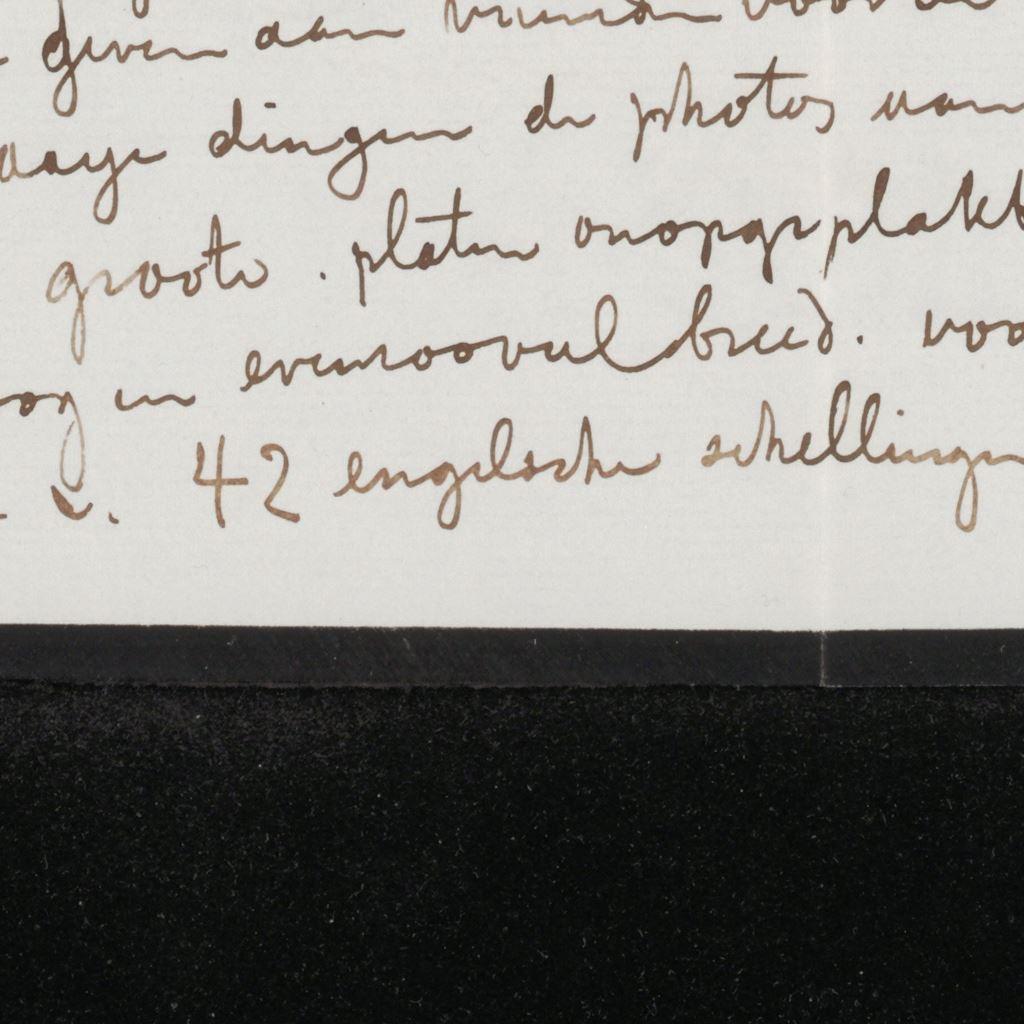 geven aan vrienden voor
dingen de photos van
groote . platen onopgeplakt
en evenzooveel breed. voo
42 engelsche schellingen